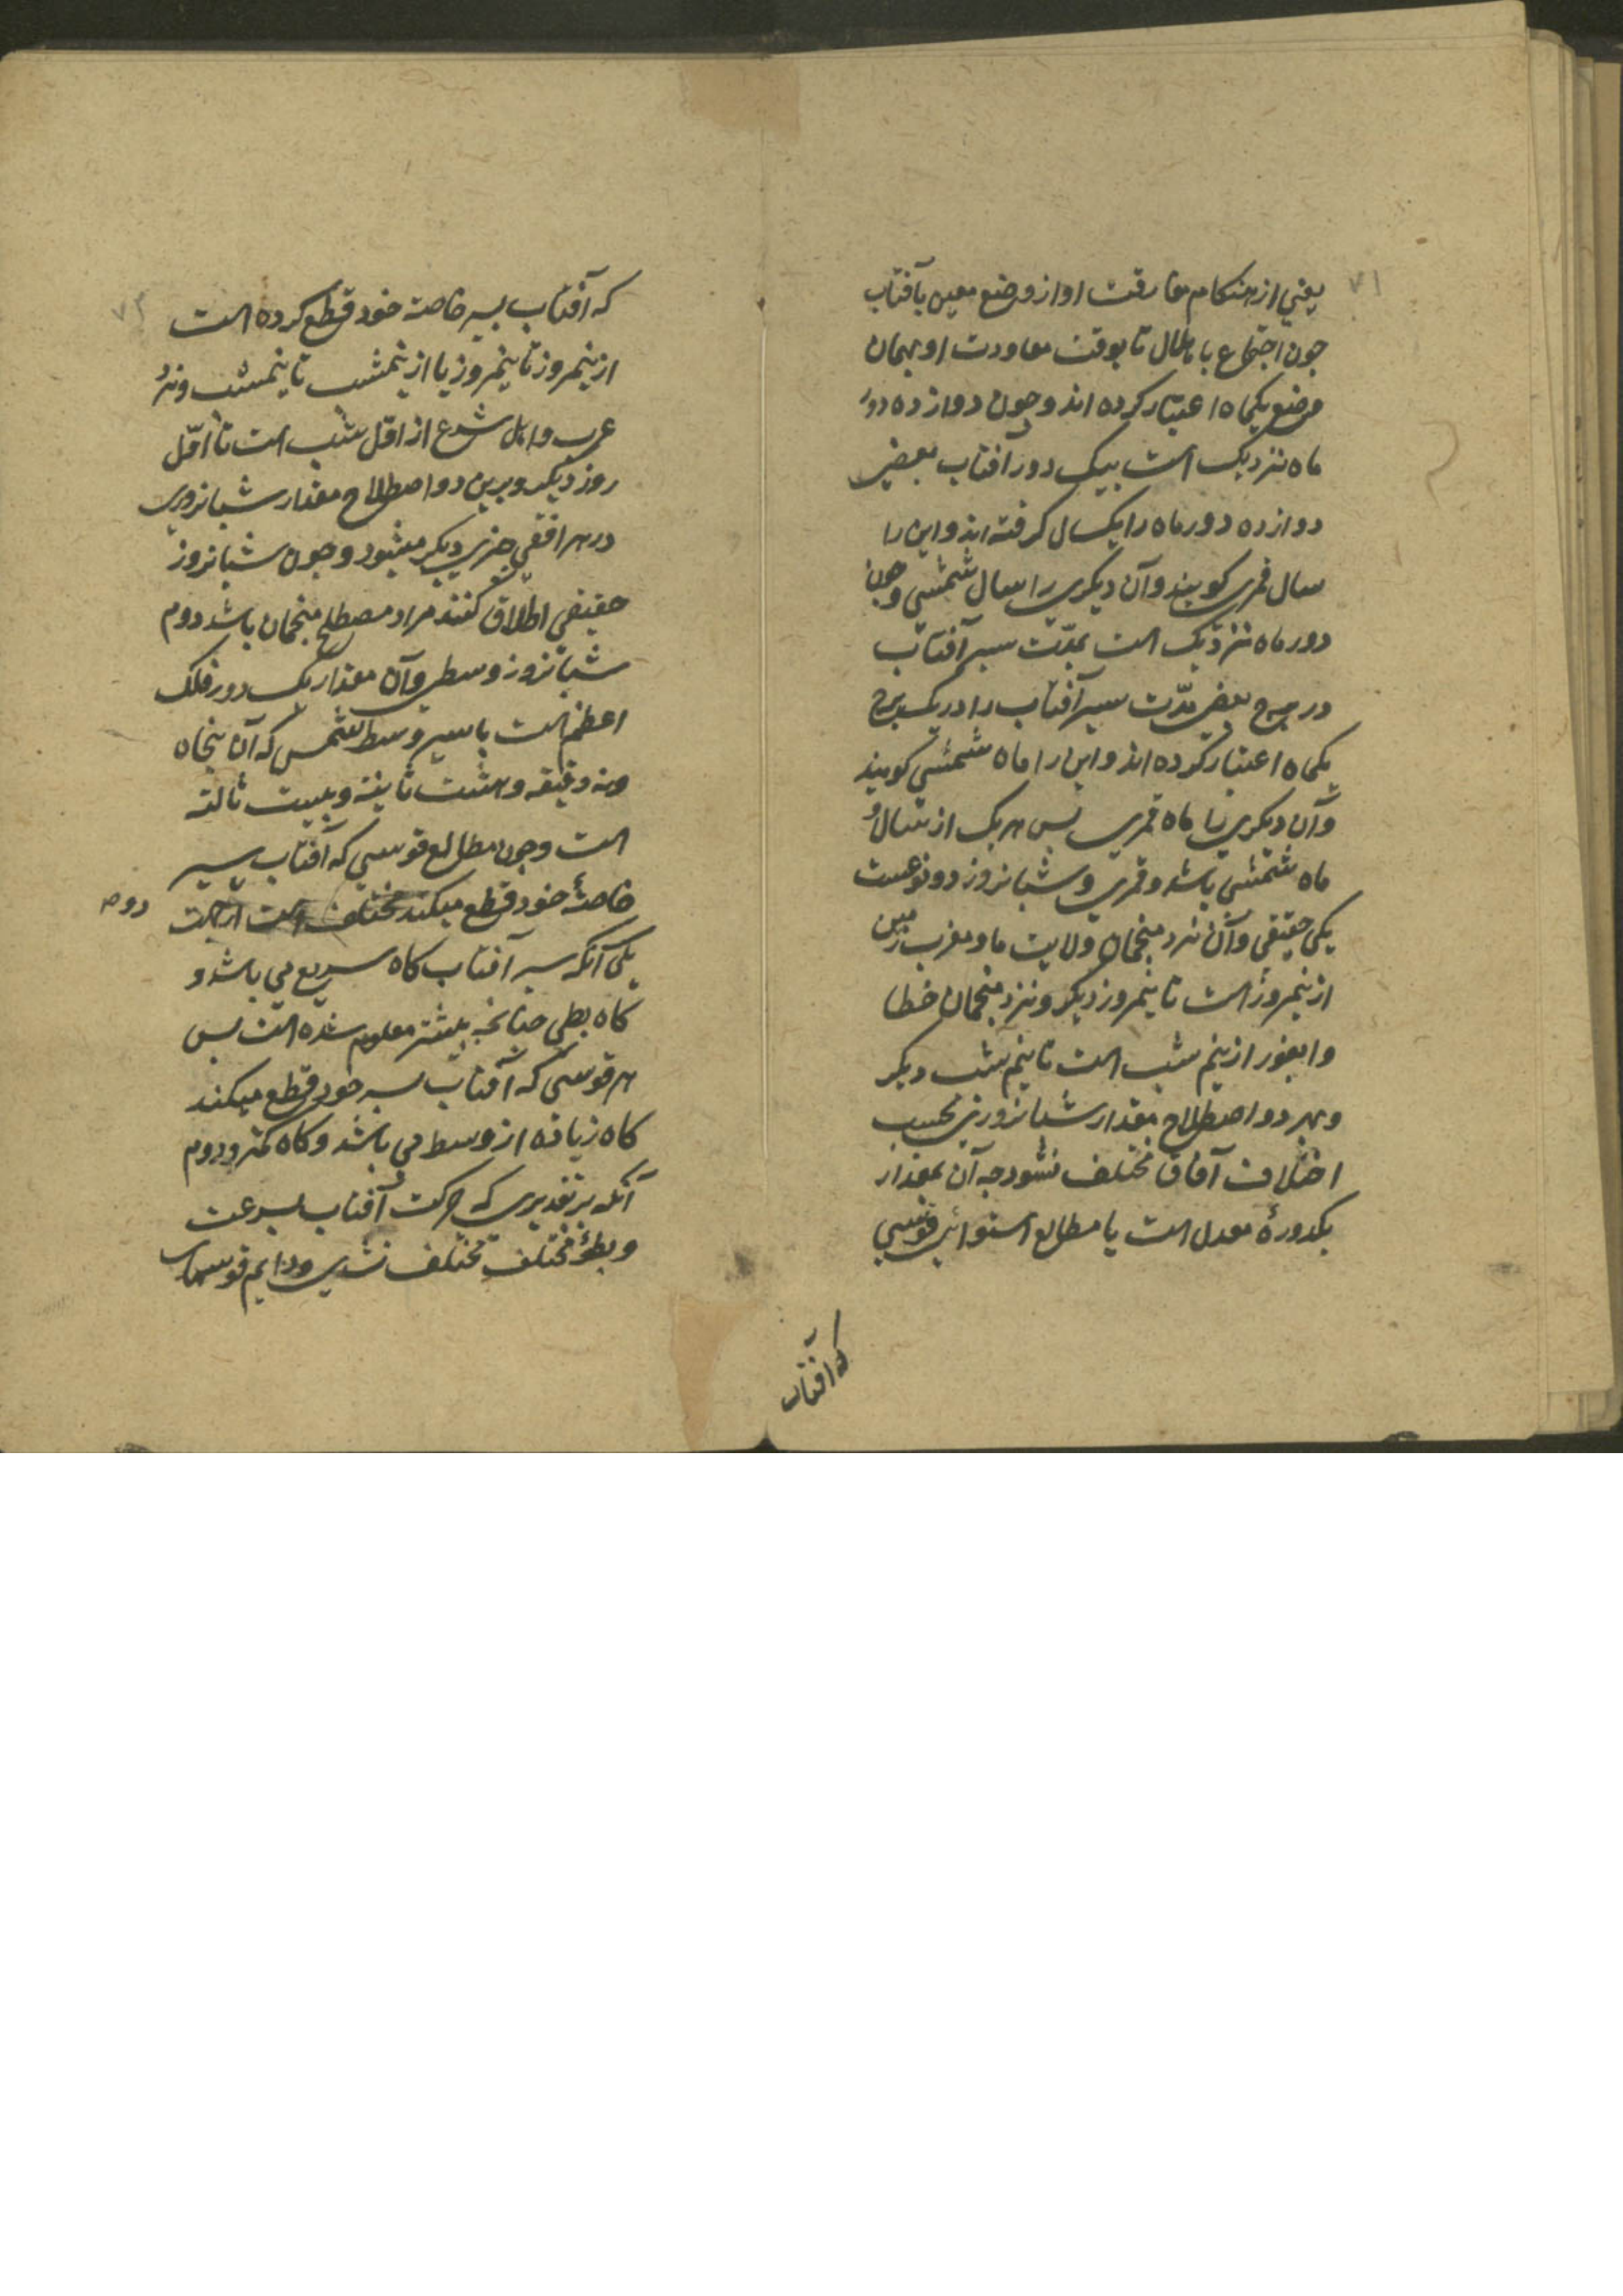 ۷۱
یعنی از هنکام مفارقت او از وضع معین بآفتاب
جون اجتماع یا هلال تا بوقت معاودت او بهمان
وضع یکماه اعتبار کرده اند و جون دوازده دور
ماه نزدیک است بیک دور آفتاب بعضی
دوازده دور ماه را یکسال کرفته اند و این را
سال قمری کویند و آن دیکری را سال شمسی و جون
دور ماه نزدیک است بمدّت سیر آفتاب
در برج بعضی مدّت سیر آفتاب را در یک برج
یکماه اعتبار کرده اند و این را ماه شمسی کویند
و آن دیکری را ماه قمری بس هر یک از سال و
ماه شمسی باشد و قمری و شبانروز دو نوعست
یکی حقیقی و آن نزد منجمان ولایت ما و مغرب زمین
از نیمروز است تا نیمروز دیکر و نزد منجمان خطا
و ایغور از نیم شب است تا نیم شب دیکر
و بهر دو اصطلاح مقدار شبانروزی بحسب
اختلاف آفاق مختلف نشود جه آن بمقدار
یکدورهٔ معدل است با مطالع استوائی قوسی
که آفتاب
۷۲
که آفتاب بسیر خاصه خود قطع کرده است
از نیمروز تا نیمروز یا از نیمشب تا نیمشب و نزد
عرب و اهل شرع از اوّل شب است تا اوّل
روز دیکر و برین دو اصطلاح مقدار شبانروزی
در هر افقی جیزی دیکر میشود و جون شبانروز
حقیقی اطلاق کنند مراد مصطلح منجمان باشد دوم
شبانروز وسطی و آن مقدار یک دور فلک
اعظم است با سیر وسط شمس که آن بنجاه
ونه دقیقه و هشت ثانیه و بیست ثالثه
است و جون مطالع قوسی که آفتاب بسیر
خاصهٔ خود قطع میکند مختلف است از
یکی آنکه سیر آفتاب کاه سریع می باشد و
کاه بطی جنانجه بیشتر معلوم شده است بس
هر قوسی که آفتاب بسیر خود قطع میکند
کاه زیاده از وسط می باشد و کاه کمتر و دوم
آنکه بر تقدیری که حرکت آفتاب بسرعت
و بطؤ مختلف نشدی و دایم قوسهای